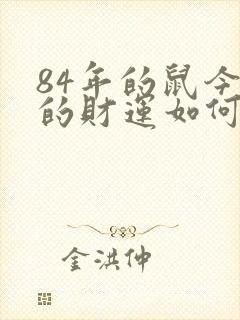 84年的鼠今
的財運如何
金洪仲